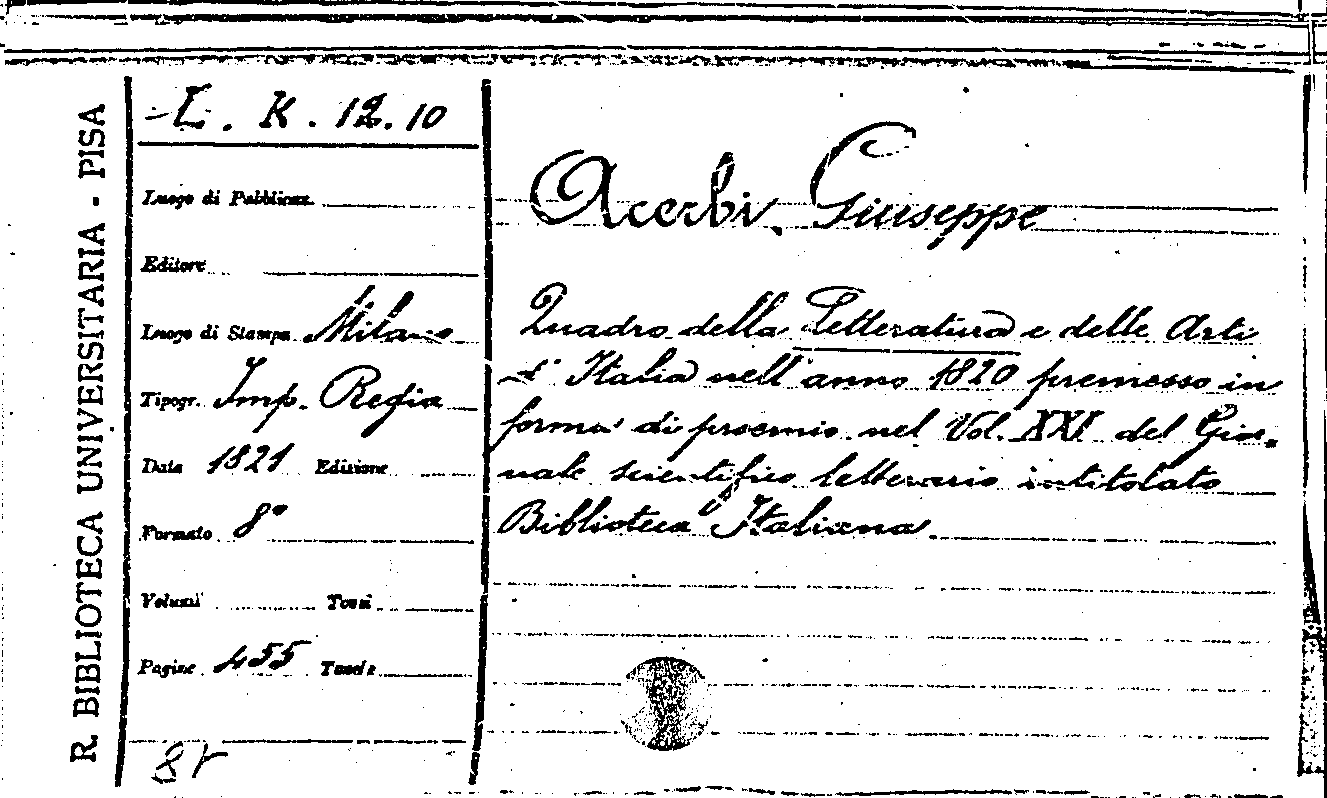 R. BIBLIOTECA UNIVERSITARIA - PISA
L. K. 12. 10
Luogo di Pubblicaz.
Editore
Luogo di Stampa Milano
Tipogr. Imp. Regia
Data 1821 Edizione
Formato 8°
Volumi Tomi
Pagine 455 Tavole
Acerbi, Giuseppe
Quadro della Letteratura e delle Arti
d' Italia nell'anno 1820 premesso in
forma di proemio nel Vol. XXI del Gior-
nale scientifico letterario intitolato
Biblioteca Italiana.